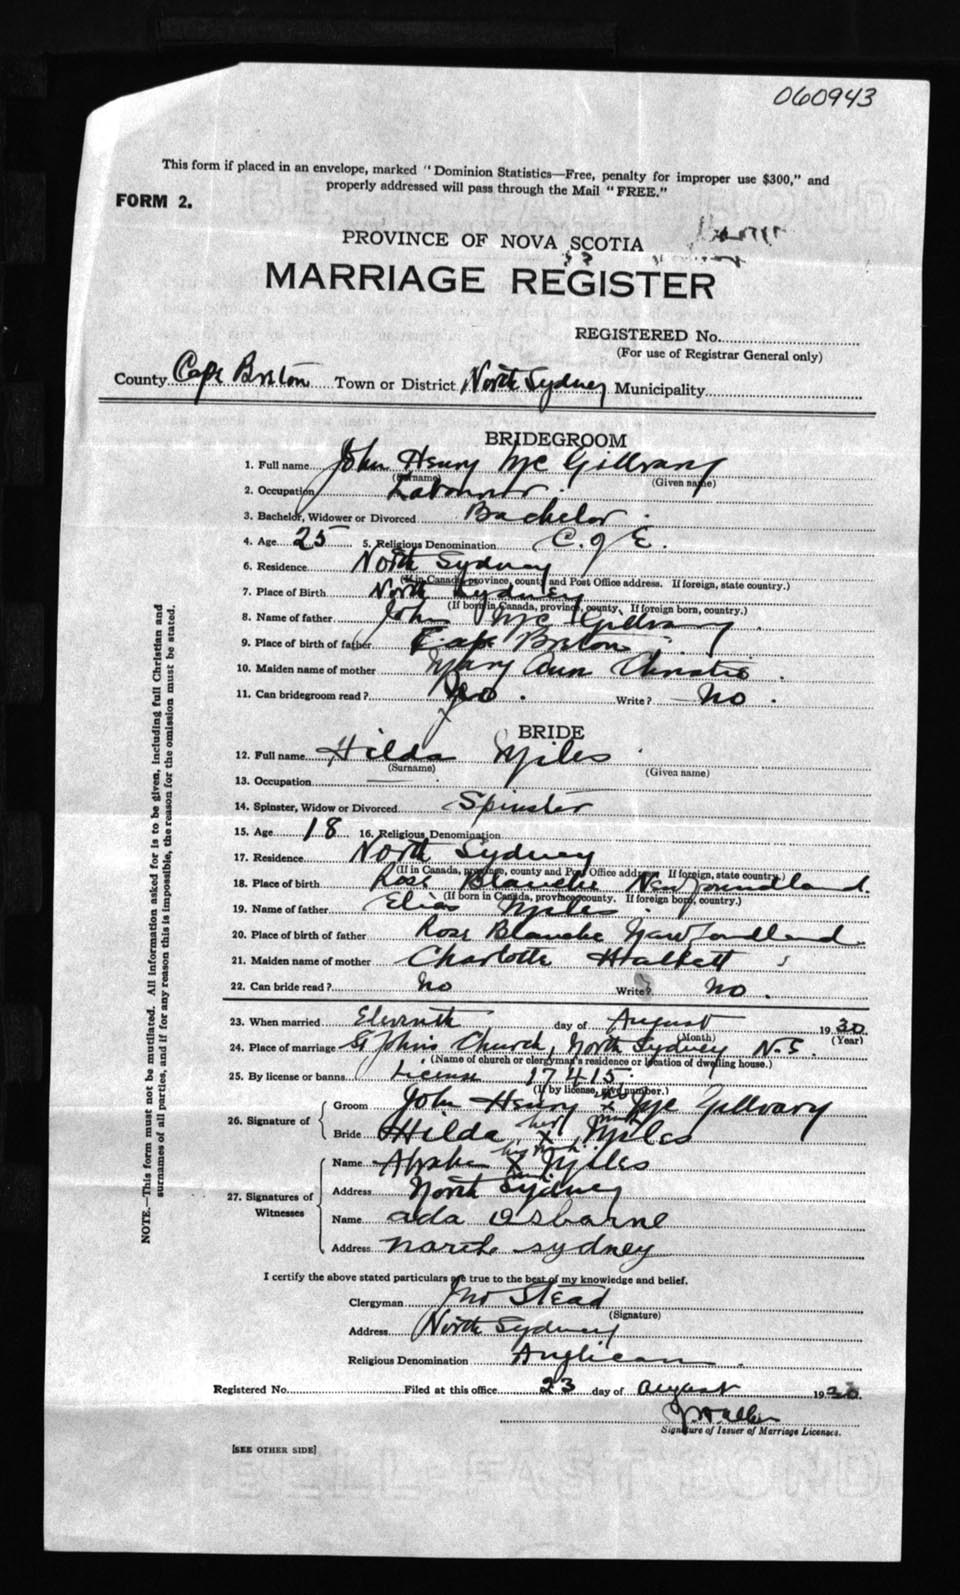 060943
This form if placed in an envelope, marked "Dominion Statistics—Free, penalty for improper use $300," and
properly addressed will pass through the Mail "FREE."
FORM 2.
PROVINCE OF NOVA SCOTIA
MARRIAGE REGISTER
REGISTERED No.
(For use of Registrar General only)
County Cape Breton Town or District North Sydney Municipality
BRIDEGROOM
1. Full name John Henry Mc Gillvary
(Surname) (Given name)
2. Occupation Labourer
3. Bachelor, Widower or Divorced Bachelor
4. Age 25 5. Religious Denomination C. of E.
6. Residence North Sydney
(If in Canada, province, county and Post Office address. If foreign, state country.)
7. Place of Birth North Sydney
(If born in Canada, province, county. If foreign born, country.)
8. Name of father John Mc Gillvary
9. Place of birth of father Cape Breton
10. Maiden name of mother Mary Ann Christie
11. Can bridegroom read? No. Write? No.
BRIDE
12. Full name Hilda Miles
(Surname) (Given name)
13. Occupation
14. Spinster, Widow or Divorced Spinster
15. Age 18 16. Religious Denomination
17. Residence North Sydney
(If in Canada, province, county and Post Office address. If foreign, state country)
18. Place of birth Rose Blanche Newfoundland.
(If born in Canada, province, county. If foreign born, country.)
19. Name of father Elias Miles
20. Place of birth of father Rose Blanche Newfoundland
21. Maiden name of mother Charlotte Halkett
22. Can bride read? No Write? No.
23. When married Eleventh day of August 1930
(Month) (Year)
24. Place of marriage St Johns Church, North Sydney N.S.
(Name of church or clergyman's residence or location of dwelling house.)
25. By license or banns License 17415
(If by license, give number.)
26. Signature of
Groom John Henry his x mark Mc Gillvary
Bride Hilda her X mark Miles
27. Signatures of Witnesses
Name X Miles
Address North Sydney
Name ada Osbarne
Address north sydney
I certify the above stated particulars are true to the best of my knowledge and belief.
Clergyman Jno Stead
(Signature)
Address North Sydney
Religious Denomination Anglican.
Registered No. Filed at this office 23 day of august 1930.
Signature of Issuer of Marriage Licenses.
[SEE OTHER SIDE]
NOTE.—This form must not be mutilated. All information asked for is to be given, including full Christian and
surnames of all parties, and if for any reason this is impossible, the reason for the omission must be stated.